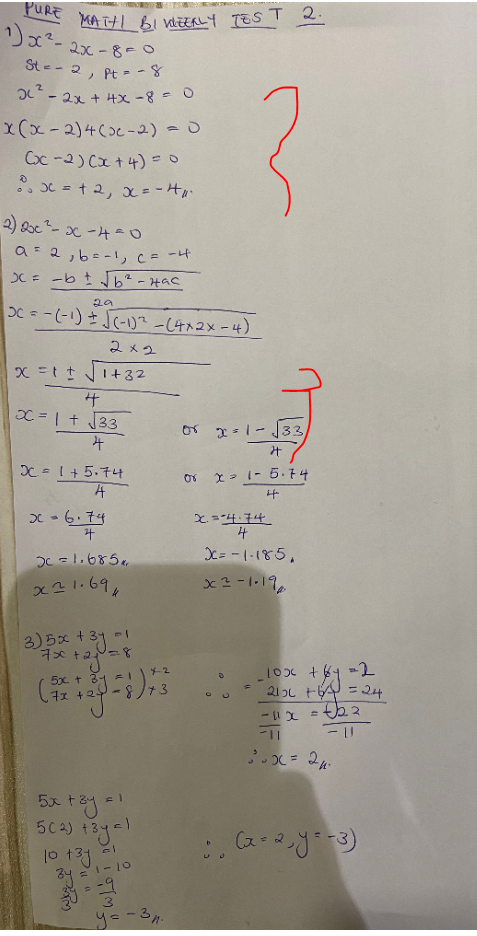 PURE MATH BI WEEKLY TEST 2.
1) x² - 2x - 8 = 0
St = - 2, Pt = - 8
x² - 2x + 4x - 8 = 0
x(x - 2)4(x - 2) = 0
(x - 2)(x + 4) = 0
∴ x = + 2, x = - 4
2) 2x² - x - 4 = 0
a = 2, b = -1, c = -4
x = -b ± √b² - 4ac
2a
x = -(-1) ± √(-1)² - (4×2×-4)
2 × 2
x = 1 ± √1+32
4
x = 1 + √33 or x = 1 - √33
4 4
x = 1 + 5.74 or x = 1 - 5.74
4 4
x = 6.74 x = -4.74
4 4
x = 1.685 x = -1.185
x ≃ 1.69 x ≃ -1.19
3) 5x + 3y = 1
7x + 2y = 8
(5x + 3y = 1) ×2 ∴ -10x + 6y = 2
(7x + 2y = 8) ×3 = 21x + 6y = 24
-11x = -22
-11 -11
∴ x = 2
5x + 3y = 1
5(2) + 3y = 1
10 + 3y = 1 ∴ (x = 2, y = -3)
3y = 1 - 10
3y = -9
3 3
y = -3